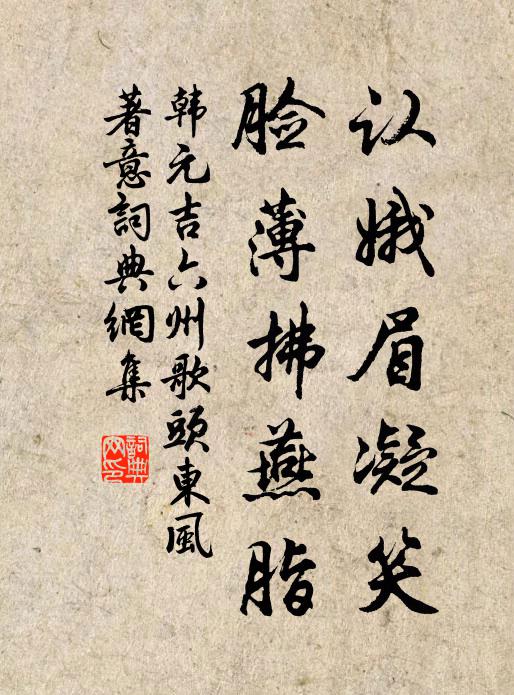 认娥眉凝笑
脸薄拂燕脂
韩元吉六州歌頭東風
著意詞典網集
詞典
网印